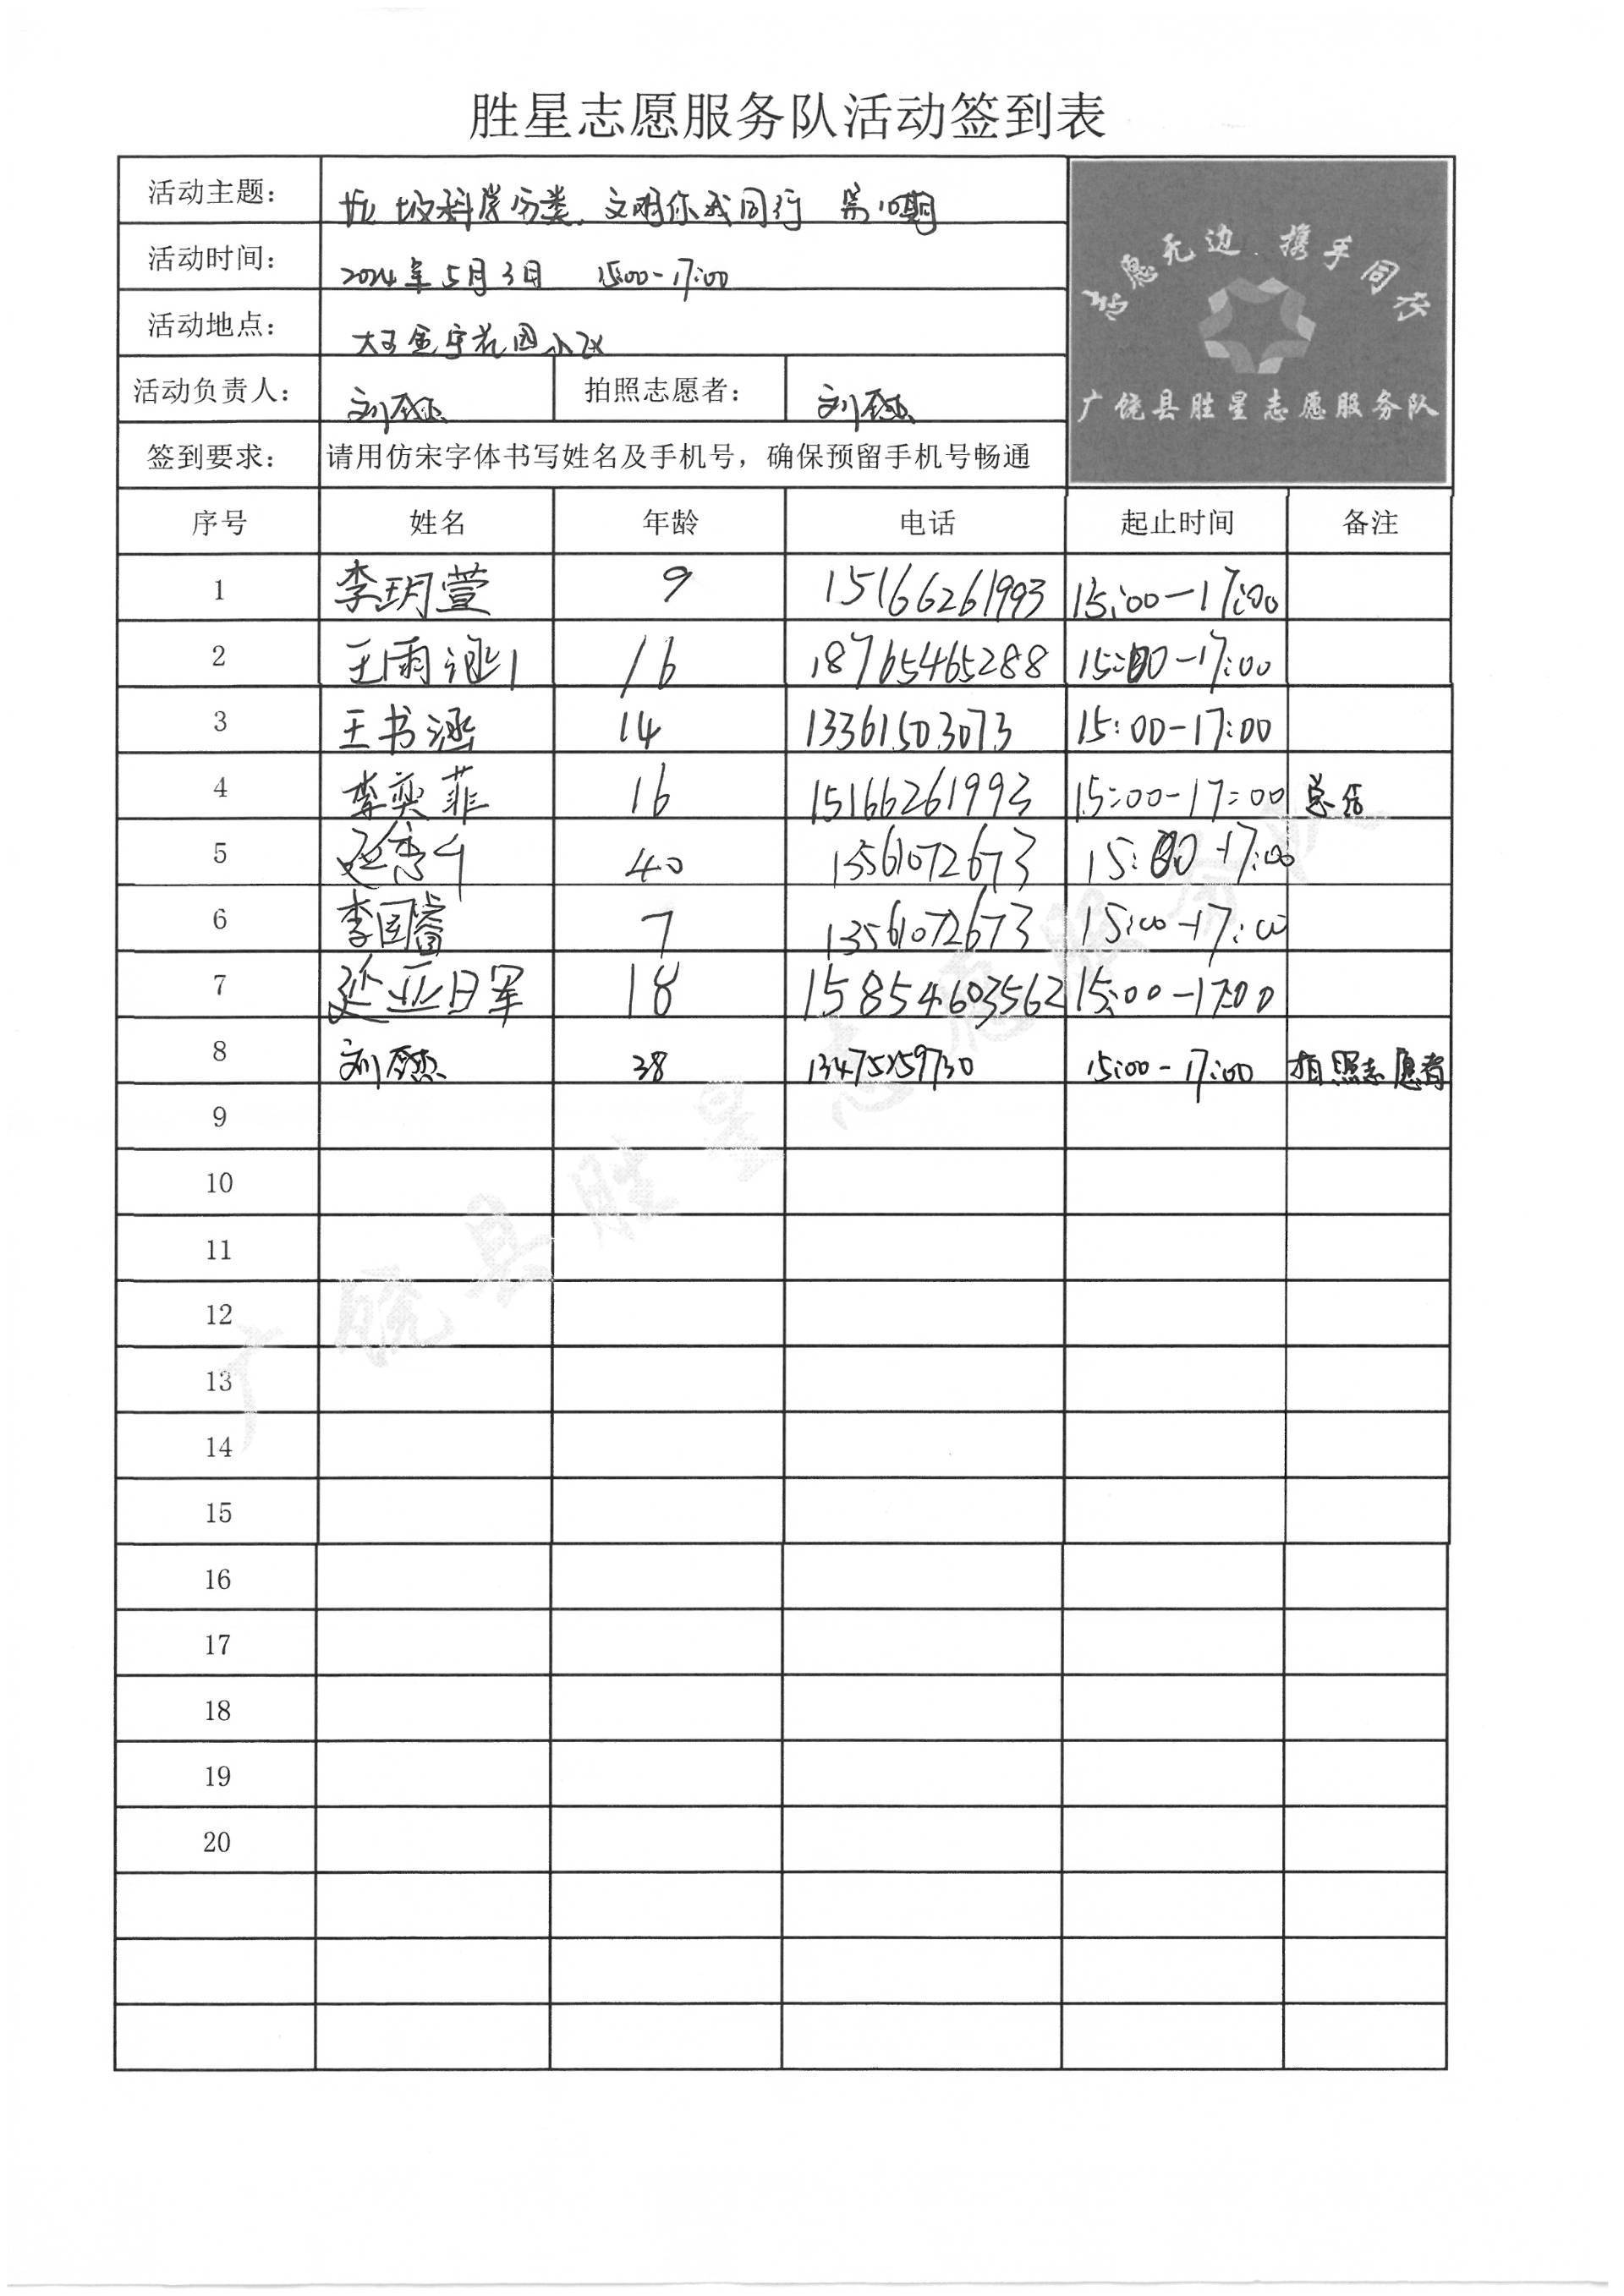 胜星志愿服务队活动签到表
活动主题： 垃圾科学分类，文明你我同行 第10期
活动时间： 2024年5月3日 15:00-17:00
活动地点： 大王金宇花园小区
志愿无边 携手同行
广饶县胜星志愿服务队
活动负责人： 刘 拍照志愿者： 刘
签到要求： 请用仿宋字体书写姓名及手机号，确保预留手机号畅通
序号 姓名 年龄 电话 起止时间 备注
1 李玥萱 9 15166261993 15:00-17:00
2 王雨涵 16 18765465288 15:00-17:00
3 王书涵 14 13361503073 15:00-17:00
4 李奕菲 16 15166261993 15:00-17:00 总结
5 延 40 13561072673 15:00-17:00
6 李国睿 7 13561072673 15:00-17:00
7 延亚 18 15854603562 15:00-17:00
8 刘 38 15:00-17:00 拍照志愿者
9
10
11
12
13
14
15
16
17
18
19
20
广饶县胜星志愿服务队